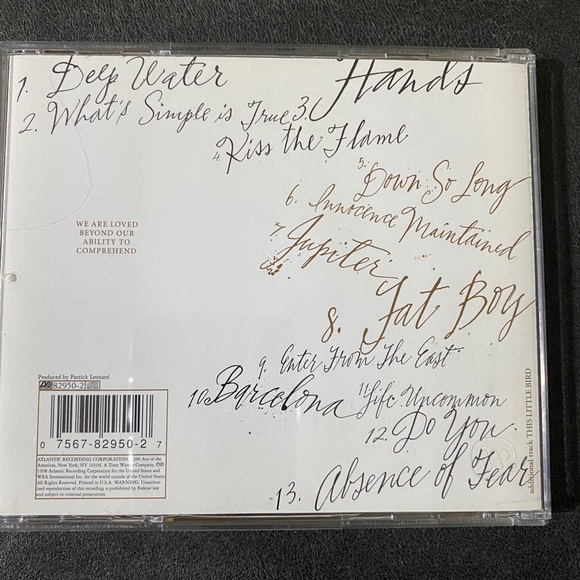 1. Deep Water
2. What's Simple is True
3. Hands
4. Kiss the Flame
5. Down So Long
6. Innocence Maintained
*7. Jupiter
8. Fat Boy
9. Enter From The East
10 Barcelona
11 Life Uncommon
12. Do You
13. Absence of Fear
WE ARE LOVED
BEYOND OUR
ABILITY TO
COMPREHEND
Produced by Patrick Leonard
82950-2
0 7567-82950-2 7
ATLANTIC RECORDING CORPORATION, 1290 Ave of the
Americas, New York, NY 10104. A Time Warner Company. ℗©
1998 Atlantic Recording Corporation for the United States and
WEA International Inc. for the world outside of the United States.
All Rights Reserved. Printed in U.S.A. WARNING: Unauthor-
ized reproduction of this recording is prohibited by Federal law
and subject to criminal prosecution.
additional track THIS LITTLE BIRD